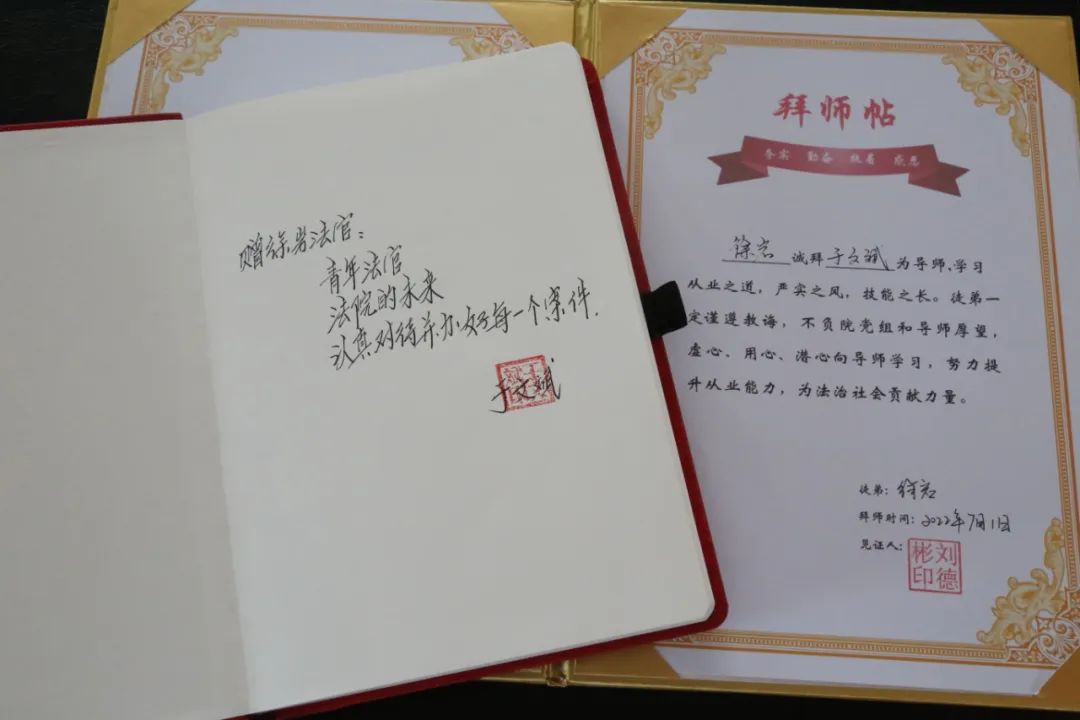 赠徐岩法官：
青年法官
法院的未来
认真对待并办好每一个案件.
于文斌
拜师帖
务实 勤奋 执着 感恩
徐岩 诚拜 于文斌 为导师、学习
从业之道，严实之风，技能之长。徒弟一
定谨遵教诲，不负院党组和导师厚望，
虚心、用心、潜心向导师学习，努力提
升从业能力，为法治社会贡献力量。
徒弟：徐岩
拜师时间：2022年7月1日
见证人：
刘德彬印